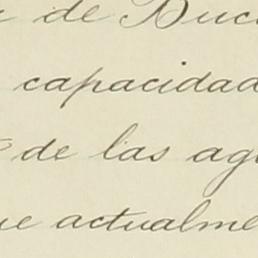 de Buc
capacidad
de las ag
ue actualme